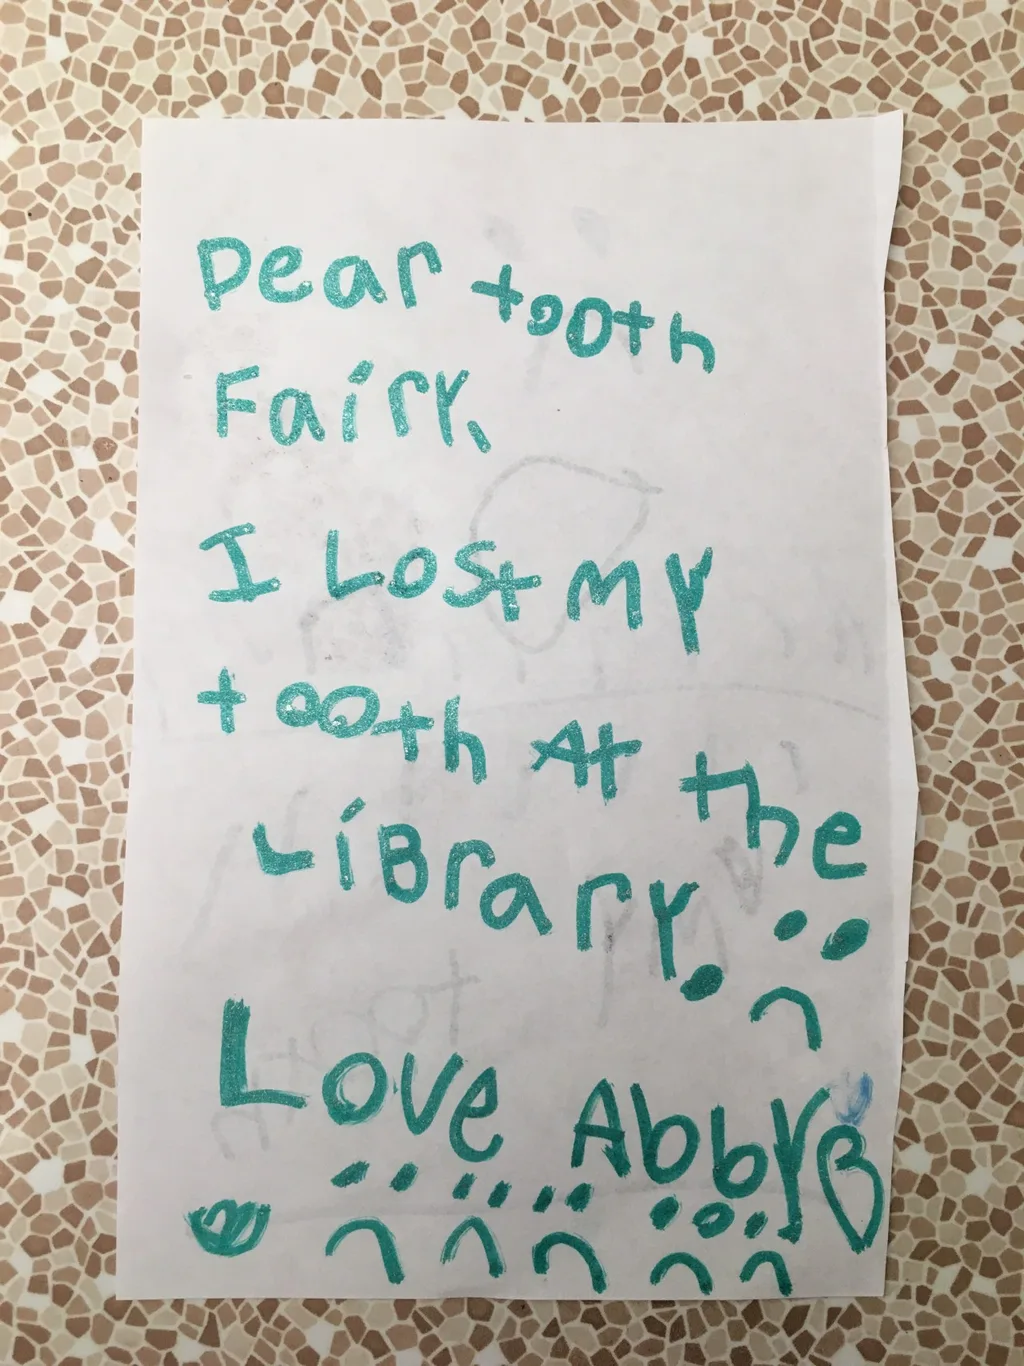 Dear tooth
Fairy,
I Lost my
tooth At the
LiBrary.
Love Abby